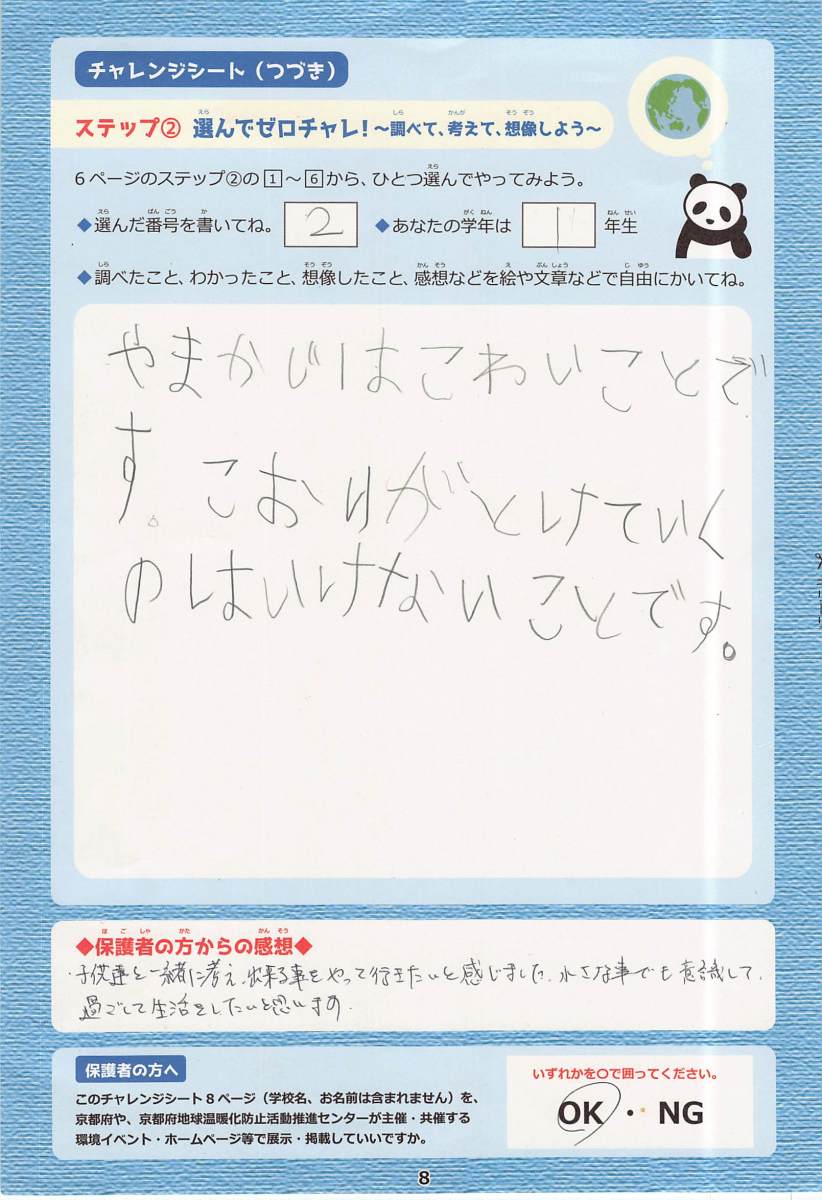 チャレンジシート（つづき）
ステップ② 選んでゼロチャレ！～調べて、考えて、想像しよう～
6ページのステップ②の1～6から、ひとつ選んでやってみよう。
◆選んだ番号を書いてね。 2 ◆あなたの学年は 1 年生
◆調べたこと、わかったこと、想像したこと、感想などを絵や文章などで自由にかいてね。
やまかじはこわいことで
す。こおりがとけていく
のはいけないことです。
◆保護者の方からの感想◆
子供達と一緒に考え、出来る事をやって行きたいと感じました。小さな事でも意識して、
過ごして生活をしたいと思います。
保護者の方へ
このチャレンジシート8ページ（学校名、お名前は含まれません）を、
京都府や、京都府地球温暖化防止活動推進センターが主催・共催する
環境イベント・ホームページ等で展示・掲載していいですか。
いずれかを〇で囲ってください。
OK・NG
8